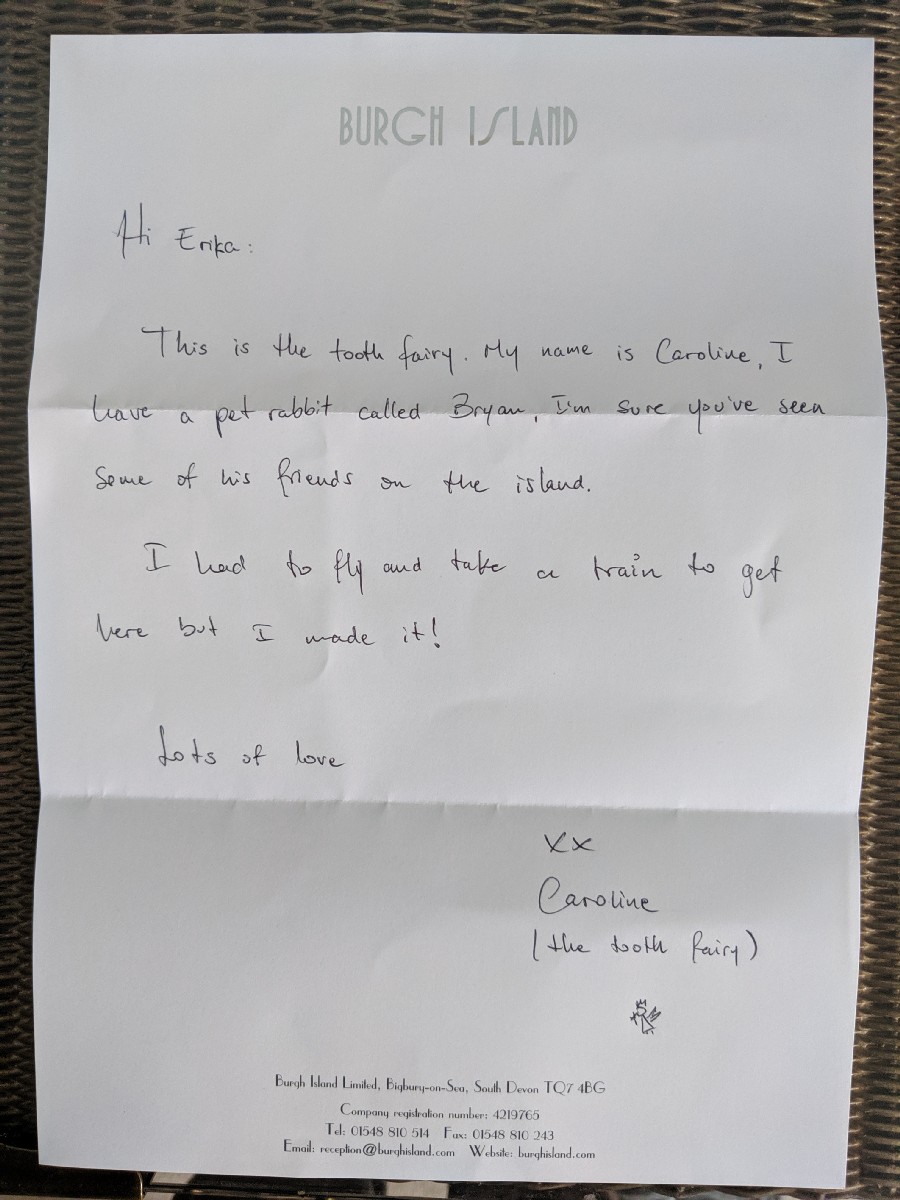 BURGH ISLAND
Hi Erika:
This is the tooth fairy. My name is Caroline, I
have a pet rabbit called Bryan, I'm sure you've seen
some of his friends on the island.
I had to fly and take a train to get
here but I made it!
Lots of love
xx
Caroline
(the tooth fairy)
Burgh Island Limited, Bigbury-on-Sea, South Devon TQ7 4BG
Company registration number: 4219765
Tel: 01548 810 514 Fax: 01548 810 243
Email: reception@burghisland.com Website: burghisland.com